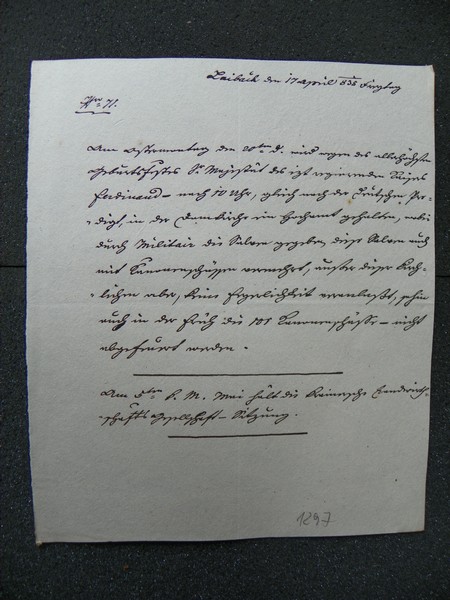 Laibach den 17 April 835 Freytag
Nro 71.
Am Ostermontag den 20ten d. wird wegen des allerhöchsten
Geburtsfestes Sr Majestät des jezt regierenden Kaisers
Ferdinand – nach 10 Uhr, gleich nach der Deütschen Pre-
digt, in der Domkirche ein Hochamt gehalten, wobei
durch Militair die Salven gegeben, diese Salven auch
mit Kanonenschüssen vermehrt, außer dieser Kirch-
lichen aber, keine Feyerlichkeit veranlaßt, sohin
auch in der Früh die 101 Kanonenschüsse – nicht
abgefeuert werden.
Am 5ten k. M. Mai hält die Krainersche Landwirth-
schafts Gesellschaft – Sitzung.
1297